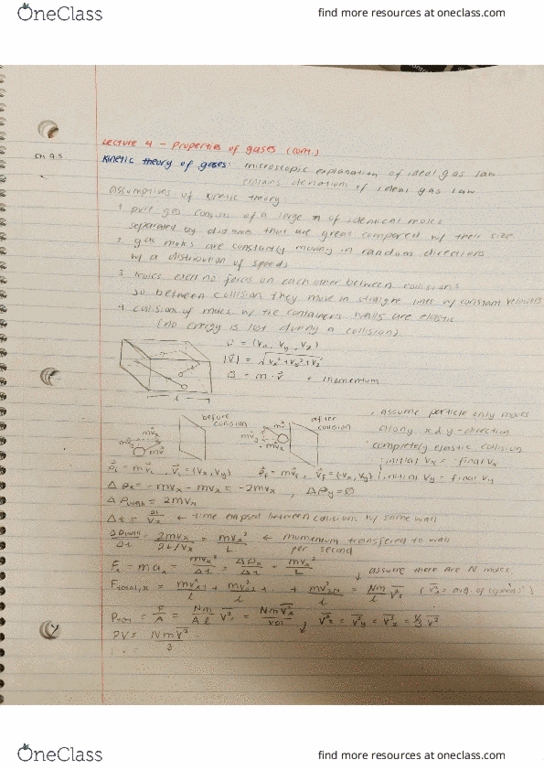 OneClass
find more resources at oneclass.com
Lecture 4 - Properties of gases (cont.)
Ch 9.5
Kinetic theory of gases: microscopic explanation of ideal gas law
contains derivation of ideal gas law
assumptions of kinetic theory:
1 pure gas consists of a large # of identical molecs
separated by distances that are great compared w/ their size
2 gas molecs are constantly moving in random directions
w/ a distribution of speeds
3 molecs exert no forces on each other between collisions
so between collision they move in straight lines w/ constant velocities
4 collisions of molecs w/ the containers walls are elastic
(no energy is lost during a collision)
= (vx, vy, vz)
|v⃗| = √vx²+vy²+vz²
= m · v⃗ = momentum
before collision
after collision
assume particle only moves
along x & y-direction
completely elastic collision
initial vx = final vx
initial vy = final vy
p⃗i = mv⃗i, v⃗i = (vx, vy)
v⃗f = (-vx, vy)
Δpx = -mvx - mvx = -2mvx, Δpy = 0
Δpwall = 2mvx
Δt = 2l/vx ← time elapsed between collisions w/ same wall
Δpwall/Δt = 2mvx/2l/vx = mvx²/L ← momentum transferred to wall
per second
assume there are N molecs
PV =
OneClass
find more resources at oneclass.com